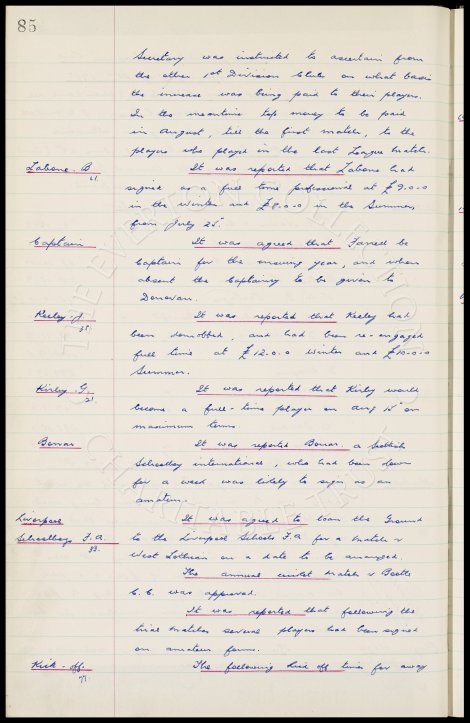 85
Secretary was instructed to ascertain from
the other 1st Division Clubs on what basis
the increase was being paid to their players.
In the meantime top money to be paid
in August, till the first match, to the
players who played in the last League match.
Labone. B It was reported that Labone had
61. signed as a full time professional at £9.0.0
in the Winter and £8.0.0 in the Summer,
from July 25th.
Captain It was agreed that Farrell be
Captain for the ensuing year, and when
absent the Captaincy to be given to
Donovan.
Keeley. J. It was reported that Keeley had
been demobbed, and had been re-engaged
full time at £12.0.0 Winter and £10.0.0
Summer.
Kirby. G. It was reported that Kirby would
21. become a full-time player on Aug 15th on
maximum terms.
Bonar It was reported Bonar, a Scottish
Schoolboy international, who had been down
for a week was likely to sign as an
amateur.
Liverpool It was agreed to loan the Ground
Schoolboys F.A. to the Liverpool Schools F.A. for a match v
33. West Lothian on a date to be arranged.
The annual cricket match v Bootle
C.C. was approved.
It was reported that following the
trial matches several players had been signed
on amateur forms.
Kick-off. The following kick off times for away
71.
THE EVERTON COLLECTION
CHARITABLE TRUST